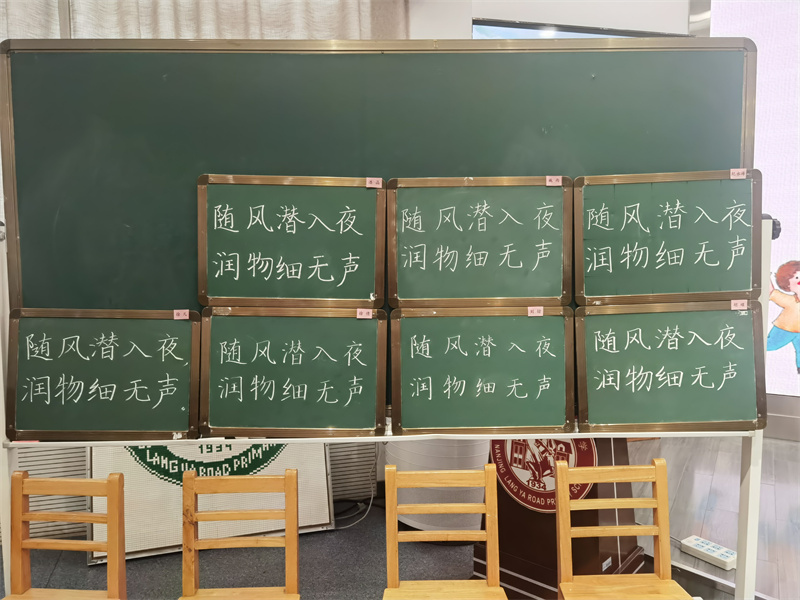 随风潜入夜
润物细无声
随风潜入夜
润物细无声
随风潜入夜
润物细无声
随风潜入夜,
润物细无声。
随风潜入夜
润物细无声
随风潜入夜
润物细无声
随风潜入夜
润物细无声
1934
LANG YA ROAD PRIMA
NANJING LANG YA ROAD PRIMARY SC
1934